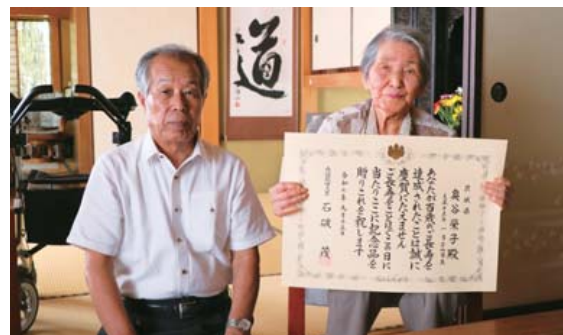 道
茨城県
奥谷栄子殿
あなたが百歳のご長寿を
達成されたことは誠に
慶賀にたえません
ご長寿をことほぐ日に
当たりここに記念品を
贈りこれを祝します
内閣総理大臣 石破 茂